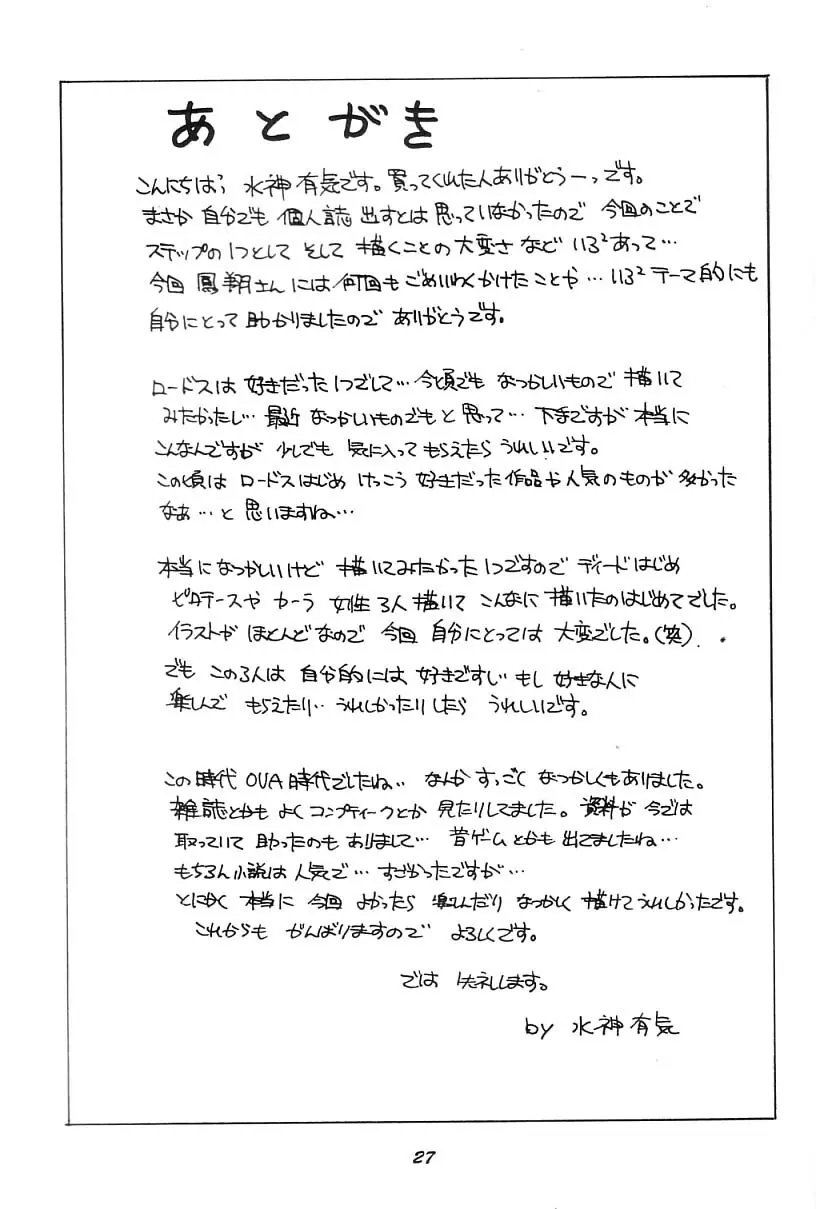 あとがき
こんにちはっ 水神有気です。買ってくれた人ありがとうーっです。
まさか 自分でも 個人誌 出すとは 思っていなかったので 今回のことで
ステップの1つとして そして 描くことの大変さ など いろ2あって…
今回 鳳翔さんには何回も ごめいわくかけたことや…いろ2テーマ的にも
自分にとって 助かりましたので ありがとうです。
ロードスは 好きだった1つでして…今頃でも なつかしいもので 描いて
みたかったし… 最近 なつかしいものでもと 思って… 下手ですが 本当に
こんなんですが 少しでも 気に入って もらえたら うれしいです。
この頃は ロードスはじめ けっこう 好きだった作品や人気のものが 多かった
なぁ…と 思いますね…
本当になつかしいけど 描いてみたかった1つですので ディードはじめ
ピロテースや カーラ 女性3人描いて こんなに 描いたのはじめてでした。
イラストが ほとんどなので 今回 自分にとっては 大変でした。(笑)
でも この3人は 自分的には、好きですし もし 好きな人に
楽しんで もらえたり… うれしかったりしたら うれしいです。
この時代 OVA時代でしたね.. なんか すっごく なつかしくもありました。
雑誌とかも よく コンプティークとか 見たりしてました。資料が 今では
取っていて 助ったのも ありまして… 昔ゲームとかも 出てましたね…
もちろん小説は 人気で… すごかったですが…
とにかく 本当に 今回 よかったら 楽しんだり なつかしく 描けて うれしかったです。
これからも がんばりますので よろしくです。
では 失礼します。
by 水神有気
27